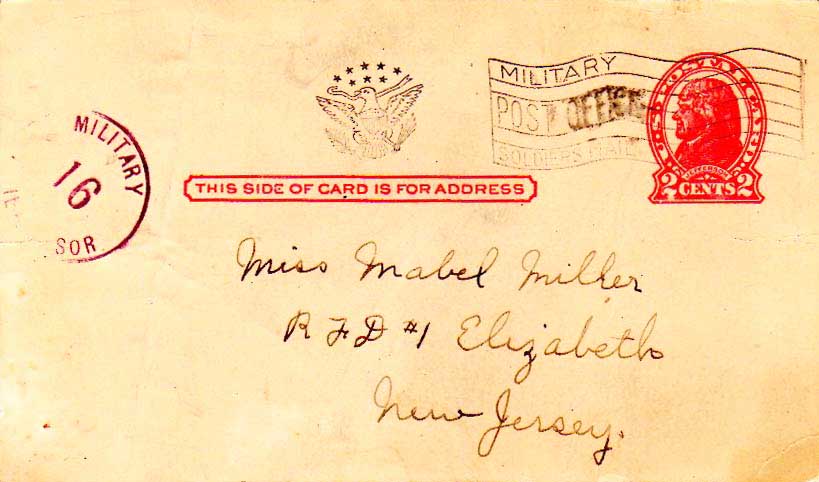 MILITARY
POST OFFICE
SOLDIERS MAIL
2 CENTS 2
JEFFERSON
MILITARY
16
SOR
THIS SIDE OF CARD IS FOR ADDRESS
Miss Mabel Miller
R F D #1 Elizabeth
New Jersey.